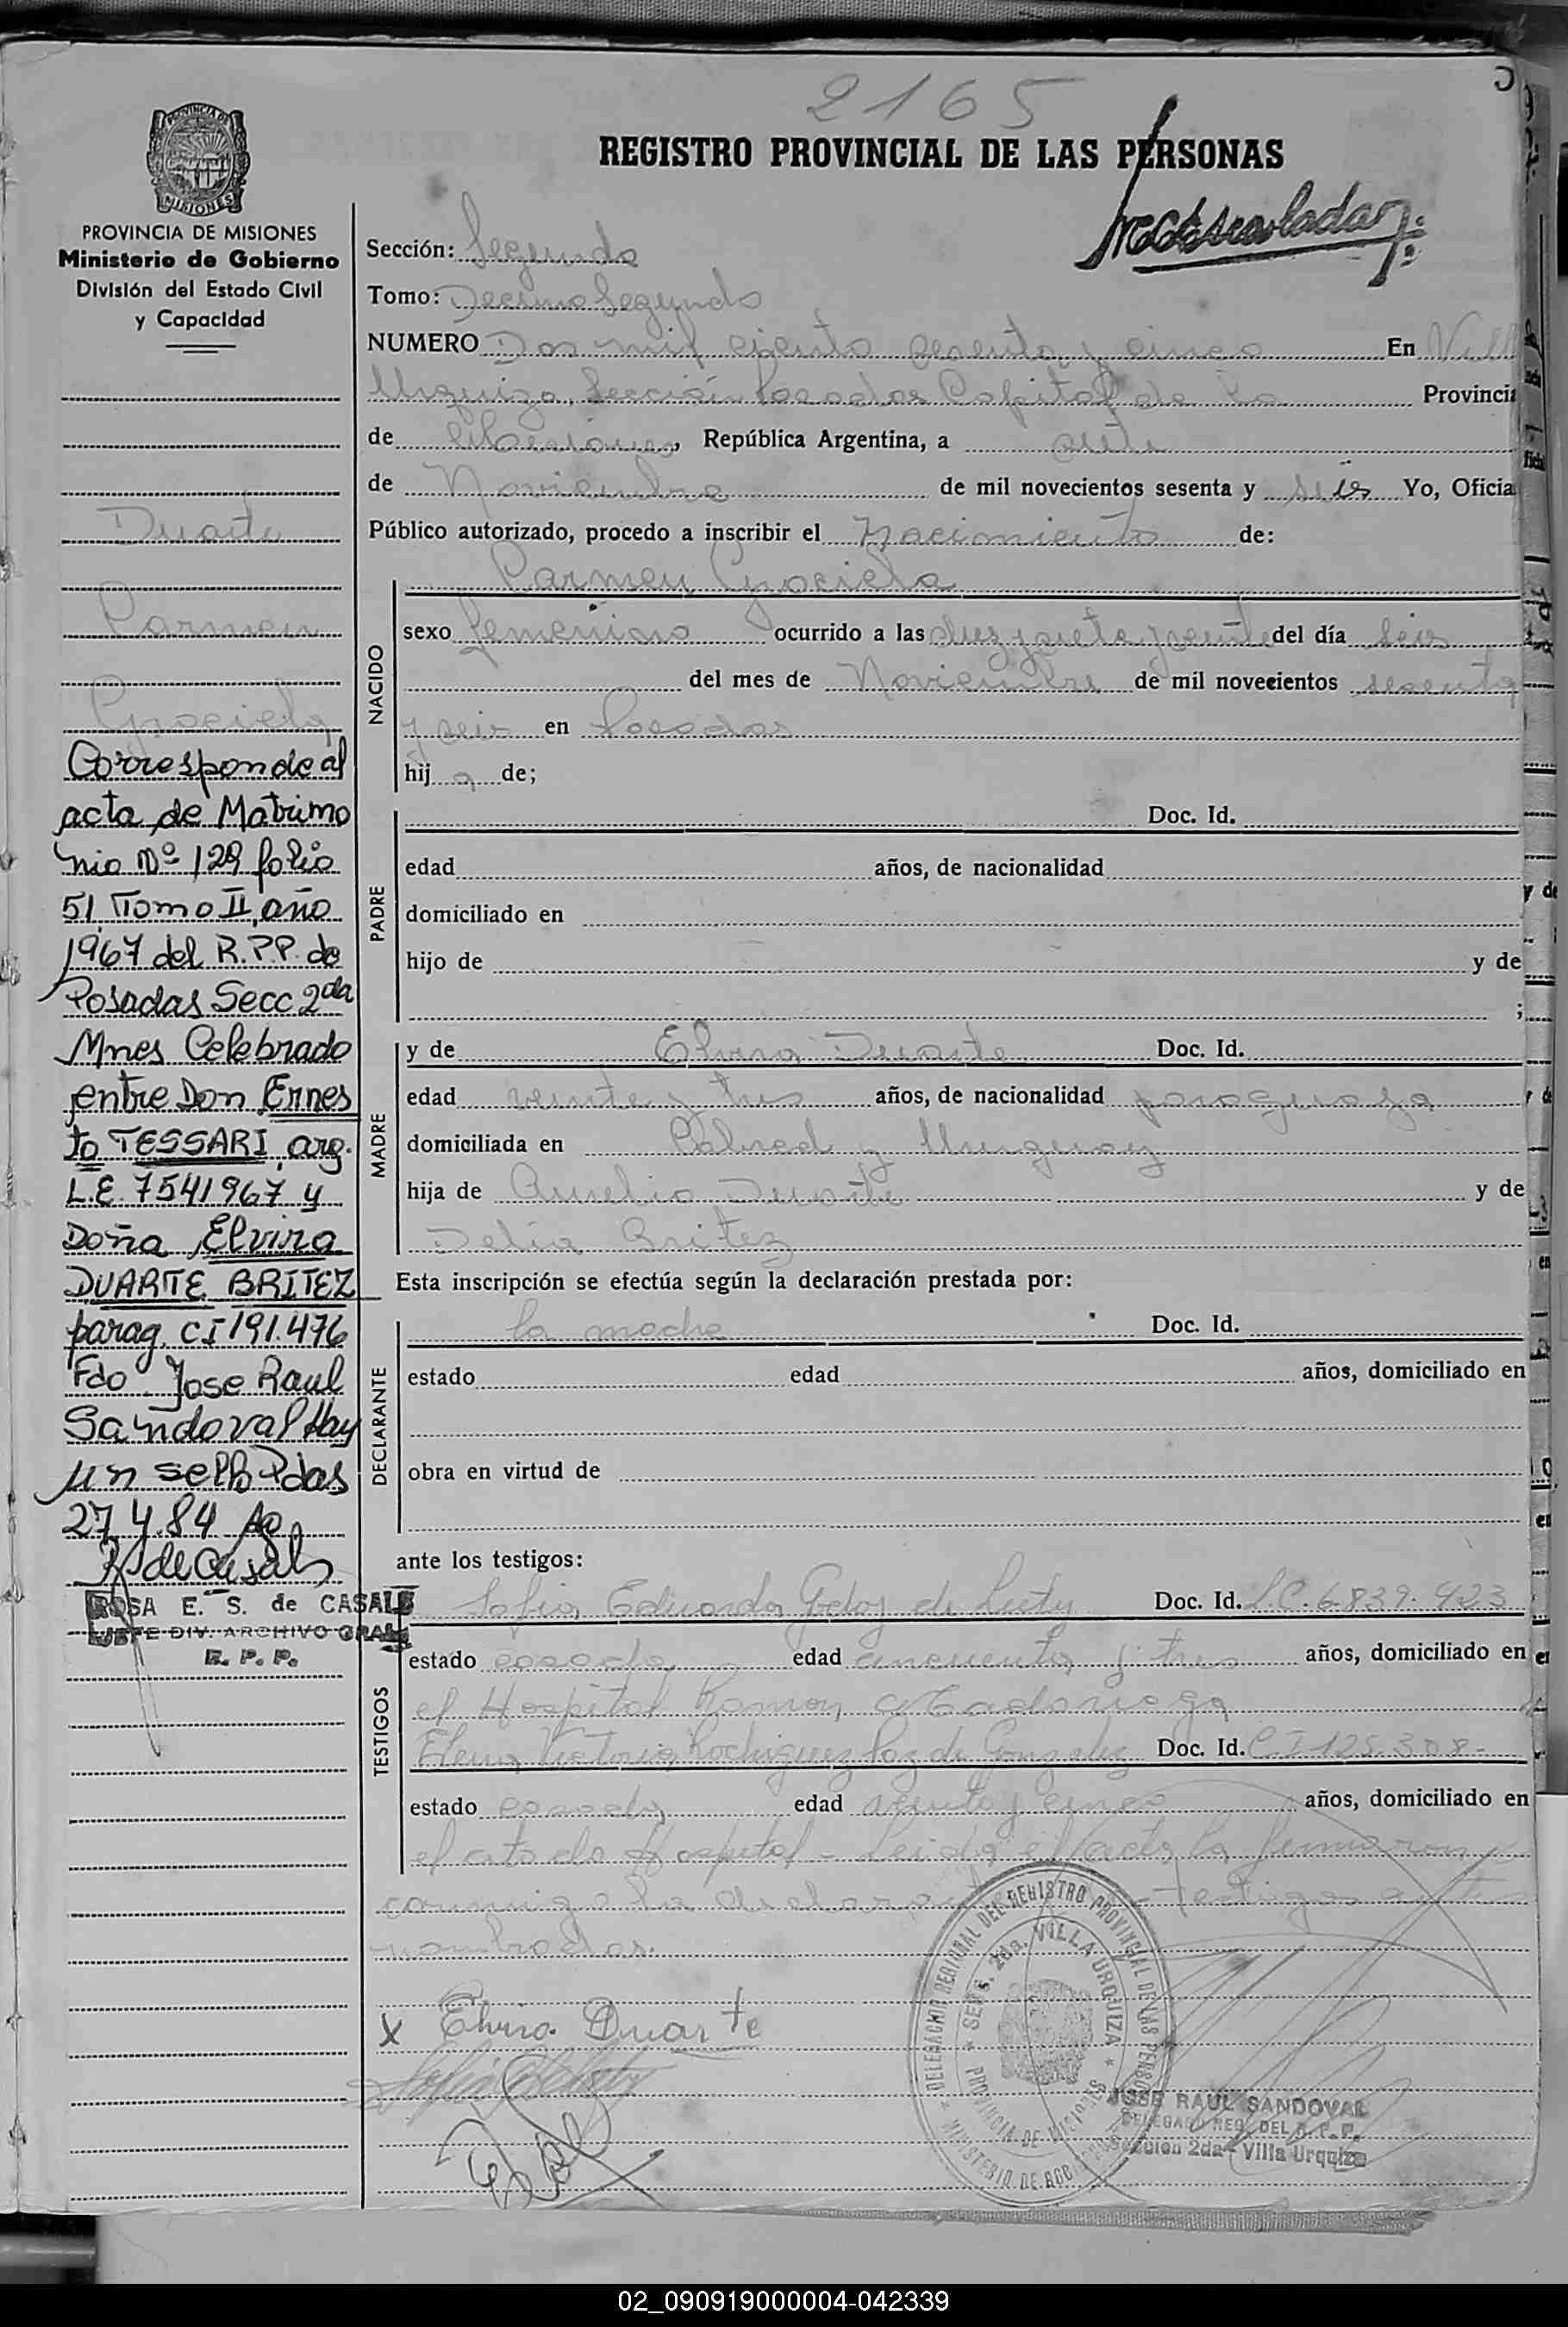 2165
REGISTRO PROVINCIAL DE LAS PERSONAS
PROVINCIA DE
MISIONES
PROVINCIA DE MISIONES
Ministerio de Gobierno
División del Estado Civil
y Capacidad
Duarte
Carmen
Graciela
Corresponde al
acta de Matrimo
nio Nº 129 folio
51 Tomo II, año
1967 del R.P.P. de
Posadas Secc 2da
Mnes Celebrado
entre Don Ernes
to TESSARI, arg.
L.E. 7541967 y
Doña Elvira
DUARTE BRITEZ
parag. CI 191.476
Fdo Jose Raul
Sandoval Hay
un sello Pdas
27.4.84
R S de Casals
ROSA E. S. de CASALS
JEFE DIV. ARCHIVO GRAL
R. P. P.
Sección: Segunda
Tomo: Decimo Segundo
NUMERO Dos mil ciento sesenta y cinco En Vill
Urquiza, Sección Posadas Capital de la Provincia
de Misiones, República Argentina, a siete
de Noviembre de mil novecientos sesenta y seis Yo, Oficia
Público autorizado, procedo a inscribir el Nacimiento de:
NACIDO
Carmen Graciela
sexo femenino ocurrido a las diez y siete y veinte del día seis
del mes de Noviembre de mil novecientos sesenta
y seis en Posadas
hija de;
PADRE
Doc. Id.
edad años, de nacionalidad
domiciliado en
hijo de y de
;
MADRE
y de Elvira Duarte Doc. Id.
edad veinte y tres años, de nacionalidad paraguaya
domiciliada en Cabred y Uruguay
hija de Aurelio Duarte y de
Delia Britez
Esta inscripción se efectúa según la declaración prestada por:
DECLARANTE
la madre Doc. Id.
estado edad años, domiciliado en
obra en virtud de
ante los testigos:
TESTIGOS
Sofia Eduarda Godoy de Doc. Id. L.C. 6.839.423
estado casada edad cincuenta y tres años, domiciliado en
el Hospital Ramon Madariaga
Elena Victoria Rodriguez Paz de Gonzalez Doc. Id. C.I 125.308-
estado casada edad y cinco años, domiciliado en
el citado Hospital - Leida el acta la firmaron
conmigo la declarante testigos
nombrados.
x Elvira Duarte
DELEGACION REGIONAL DEL REGISTRO PROVINCIAL DE LAS PERSONAS
MINISTERIO DE GOB
2da. VILLA URQUIZA
PROVINCIA DE MISIONES
JOSE RAUL SANDOVAL
DELEGADO REG. DEL R. P. P.
Sección 2da - Villa Urquiza
02_090919000004-042339